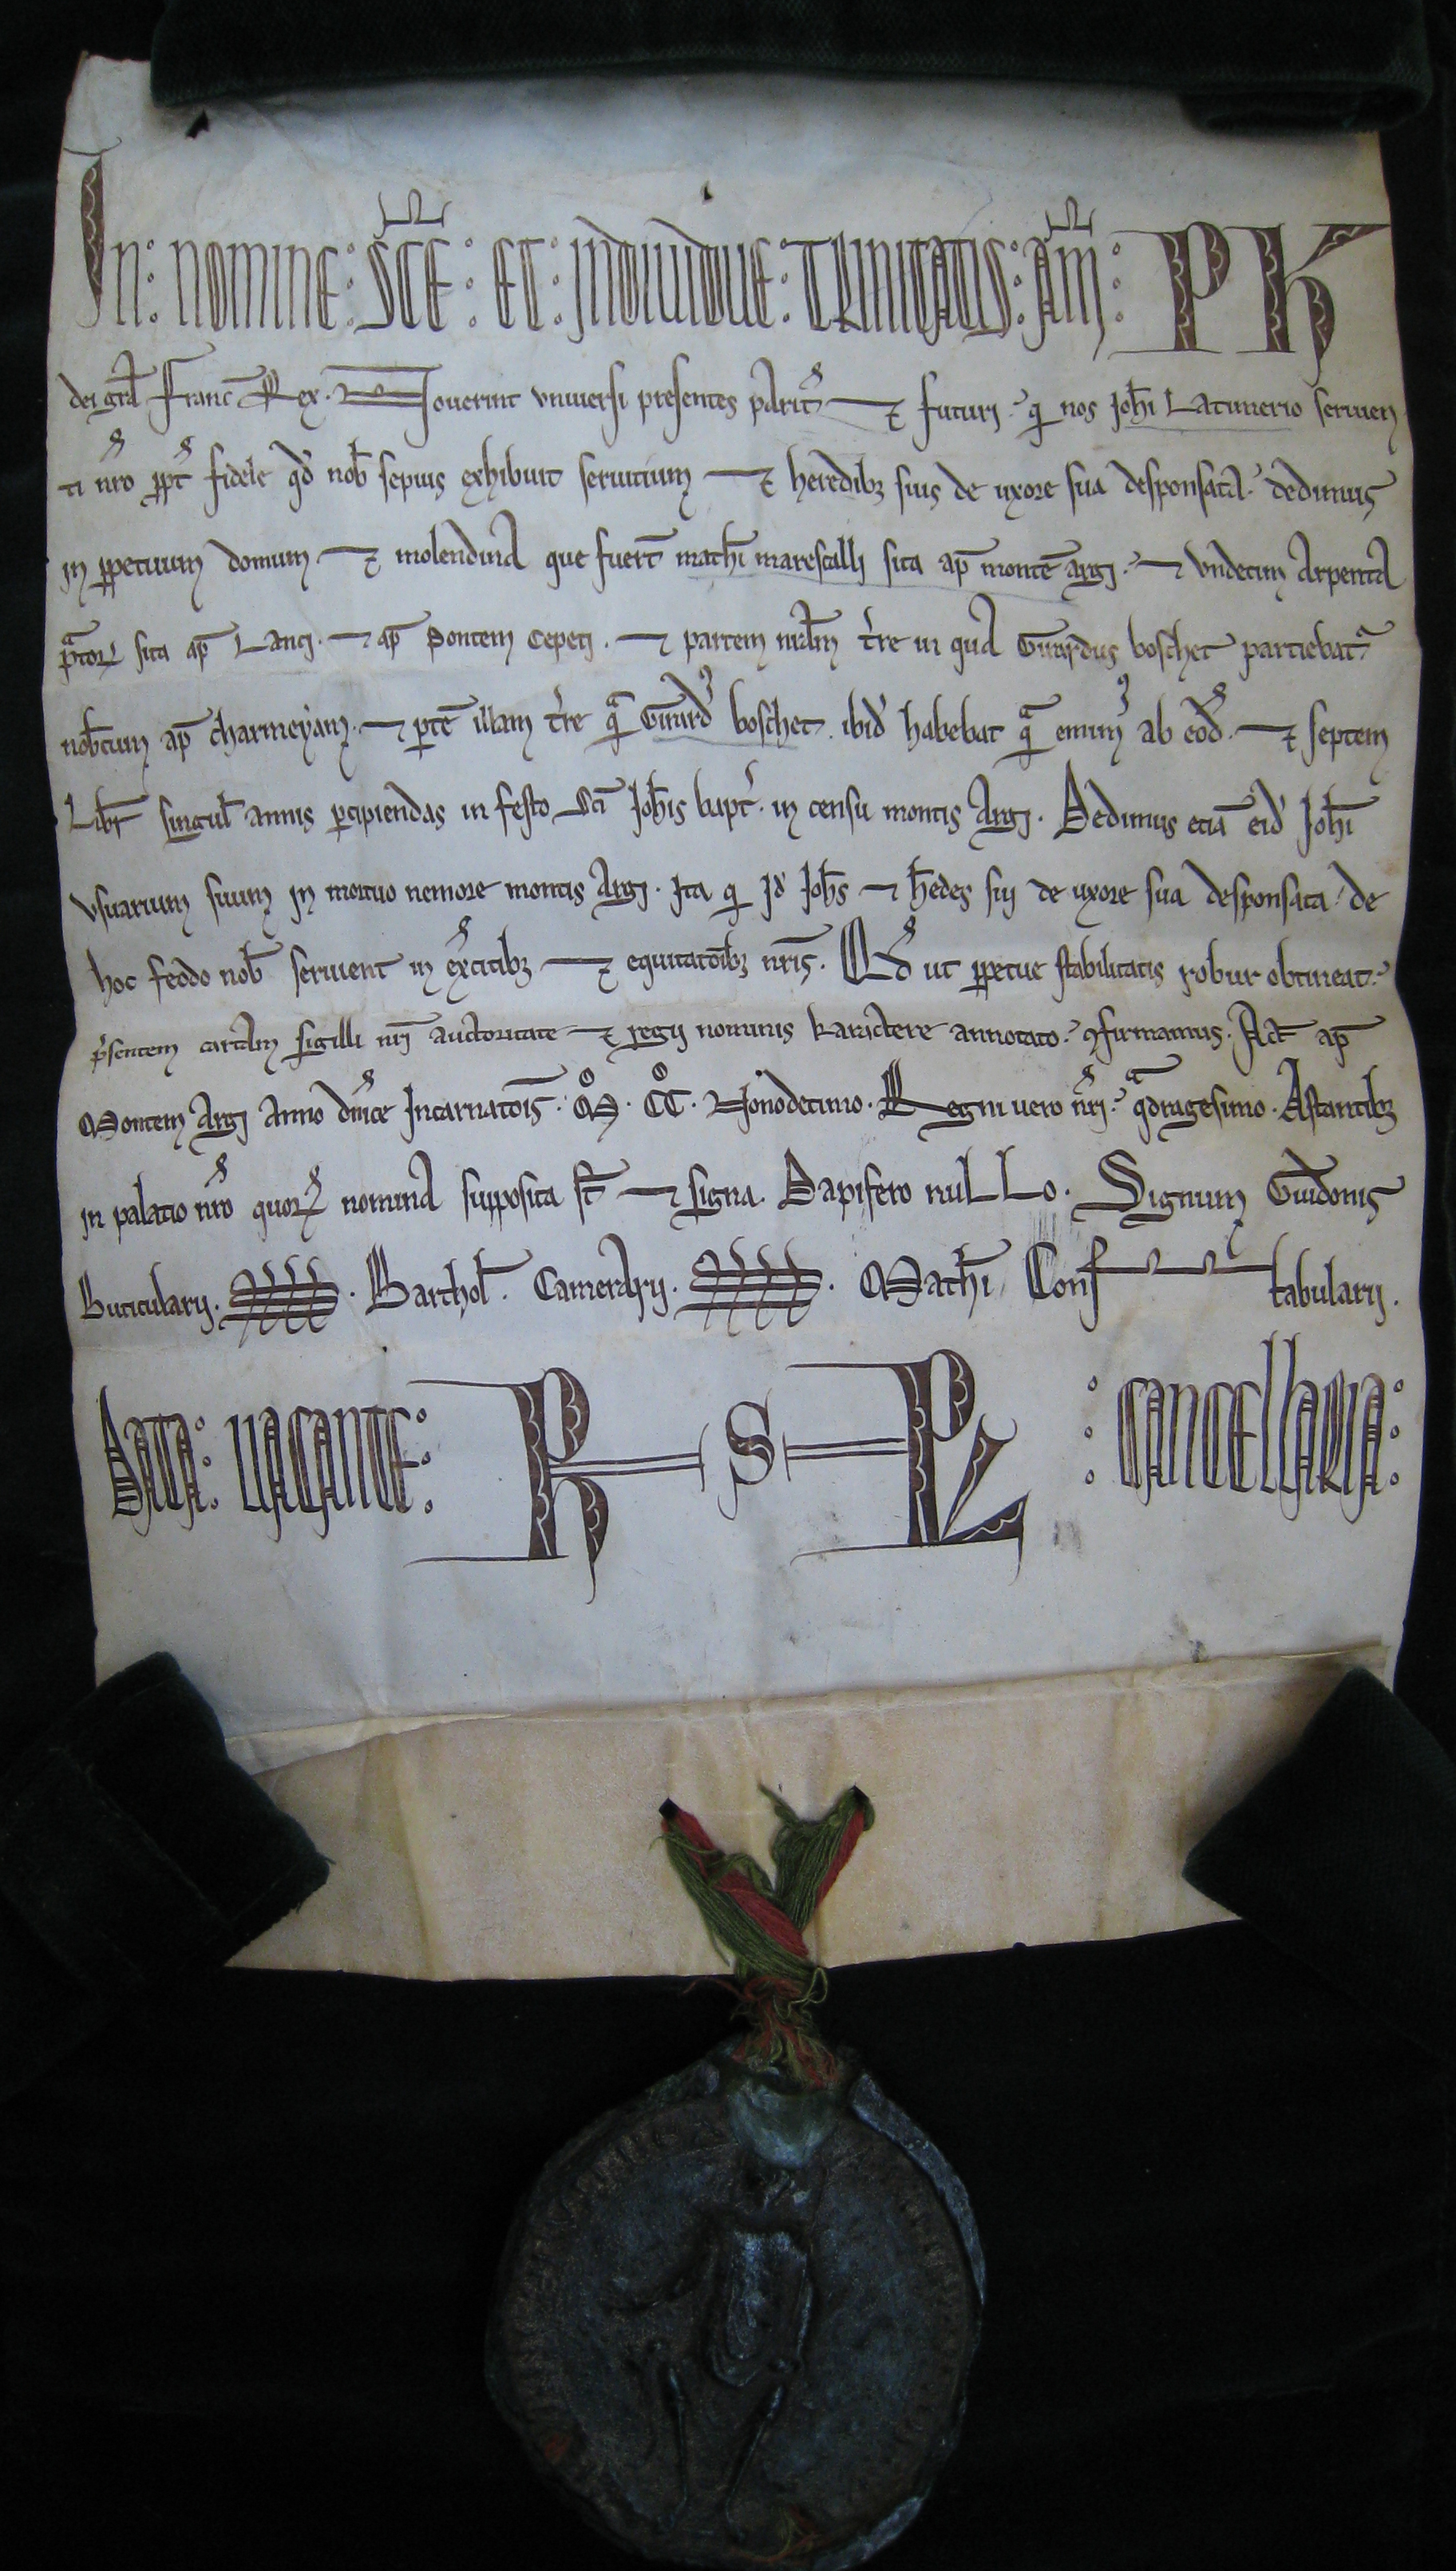 In: nomine: sc̄e: et: Indiuidue: trinitatis: am̄: Ph
dei gr̄a Franc̄ Rex. Nouerint vniuersi presentes parit̄ ⁊ futuri. qđ nos Joh̄i Latimerio seruien
ti nr̄o ꝓpt̄ fidele qd̄ nob̄ sepius exhibuit seruitium ⁊ heredibꝫ suis de uxore sua desponsata. dedimus
in ꝑpetuum domum ⁊ molendina que fuer̄t math̄i marescalli sita ap̄ monte᷒̄ argi. ⁊ vndecim arpenta
pͣtoꝝ sita ap̄ Lanci. ⁊ ap̄ Pontem Cepeti. ⁊ partem nr̄am t̄re in qua Girardus boschet partiebat᷒
nobiscum ap̄ charmeyam. ⁊ ꝑte̅ illam t̄re qͣ Girardꝰ boschet ibid̄ habebat qͣ emimꝰ ab eod̄. ⁊ septem
Libr̄ singul̄ annis ꝑcipiendas in festo Sc̄i Joh̄is bapt̄. in censu montis Argi. Dedimus etiā eid̄ Joh̄i
vsuarium suum in mortuo nemore montis Argi. Ita qđ Id̄ Joh̄s ⁊ h̄edes sui de uxore sua desponsata de
hoc feodo nob̄ seruient in ex̄citibꝫ ⁊ equitatōibꝫ nr̄is. Qd̄ ut ꝑpetue stabilitatis robur obtineat.
p̄sentem cartam sigilli nr̄i auctoritate ⁊ regii nominis karactere annotato ꝯfirmamus. Act̄ ap̄
Montem Argi anno dn̄ice Incarnatōis. M̊. CC̊. Nonodecimo. Regni uero nr̄i. qͣdragesimo. Astantibꝫ
in palatio nr̄o quoꝝ nomina supposita st̄ ⁊ signa. Dapifero nulLo. Signum Guidonis
Buticularii. Barthol̄. Camerarii. Math̄i Constabularii.
Data: uacante: R S Ph : cancellaria: